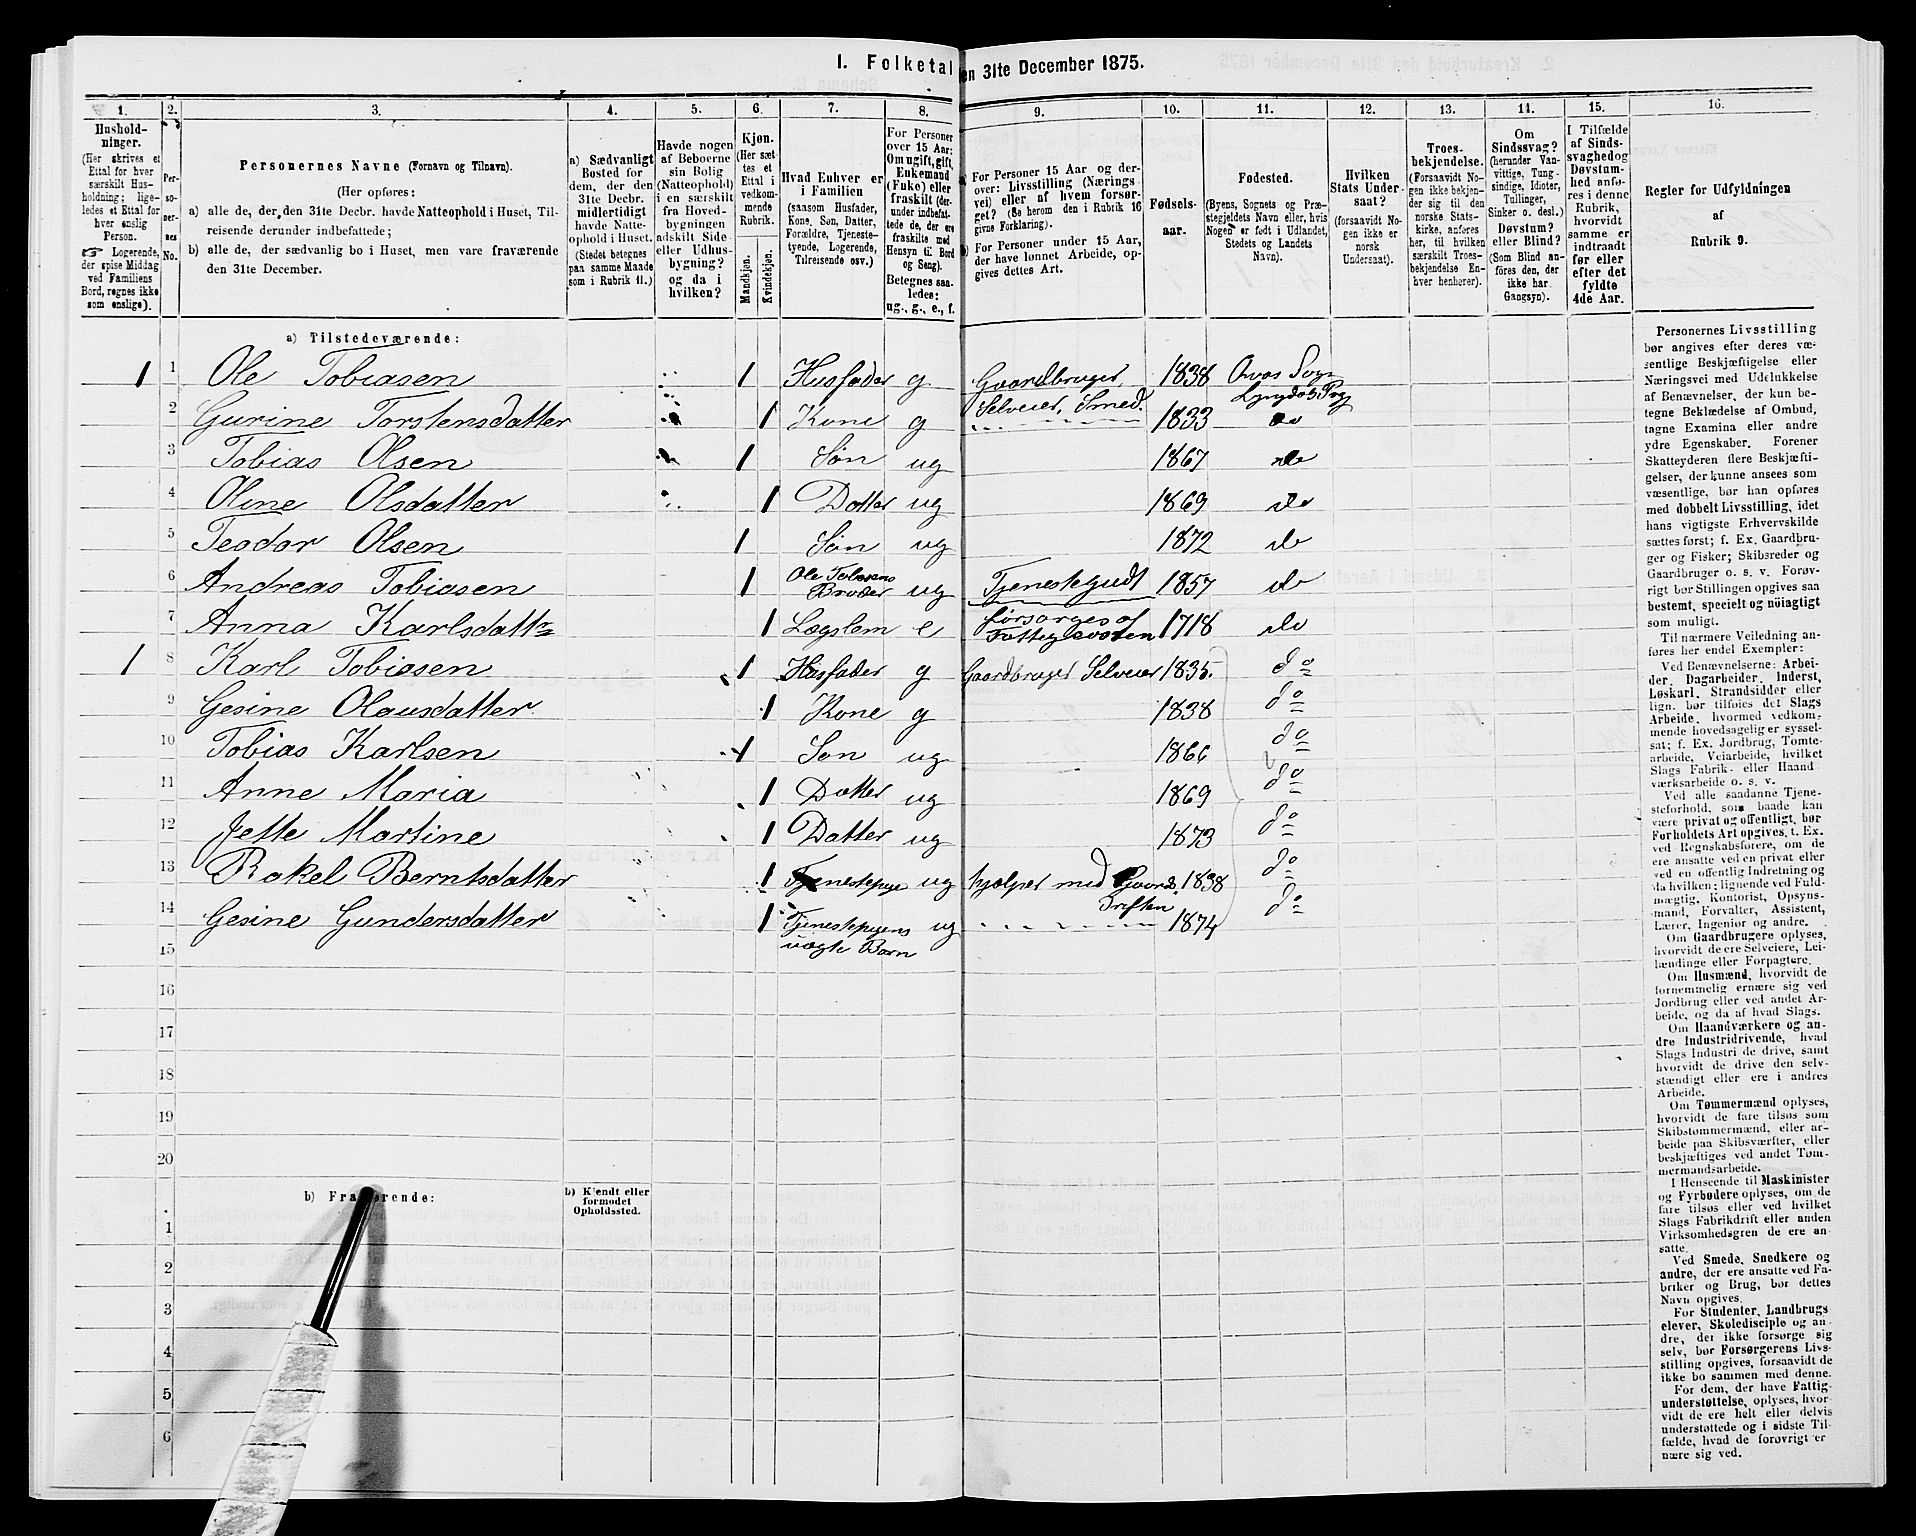 I. Folketal
en 31te December 1875.
1. 2. 3. 4. 5. 6. 7. 8. 9. 10. 11. 12. 13. 14. 15. 16.
Hushold-
ninger.
(Her skrives et
Ettal for hver
særskilt Hus-
holdning; lige-
ledes et Ettal for
hver enslig
Person.
☞ Logerende,
der spise Middag
ved Familiens
Bord, regnes ikke
som enslige).
Per-
so-
ner-
nes
No.
Personernes Navne (Fornavn og Tilnavn).
(Her opføres:
a) alle de, der den 31te Decbr. havde Natteophold i Huset, Til-
reisende derunder indbefattede;
b) alle de, der sædvanlig bo i Huset, men vare fraværende
den 31te December.
a) Sædvanligt
Bosted for
dem, der den
31te Decbr.
midlertidigt
havde Natte-
ophold i Huset.
(Stedet betegnes
paa samme Maade
som i Rubrik 11.)
Havde nogen
af Beboerne
sin Bolig
(Natteophold)
i en særskilt
fra Hoved-
bygningen
adskilt Side-
eller Udhus-
bygning?
og da i
hvilken?
Kjøn.
(Her sæt-
tes et
Ettal i
vedkom-
mende
Rubrik.
Mandkjøn.
Kvindekjøn.
Hvad Enhver er
i Familien
(saasom Husfader,
Kone, Søn, Datter,
Forældre, Tjeneste-
tyende, Logerende,
Tilreisende osv.)
For Personer
over 15 Aar:
Om ugift, gift,
Enkemand
(Enke) eller
fraskilt (der-
under indbefat-
tede de, der ere
fraskilte med
Hensyn til Bord
og Seng).
Betegnes saa-
ledes:
ug., g., e., f.
a) For Personer 15 Aar og der-
over: Livsstilling (Nærings-
vei) eller af hvem forsør-
get? (Se herom den i Rubrik 16
givne Forklaring).
b) For Personer under 15 Aar,
der have lønnet Arbeide, op-
gives dettes Art.
Fødsels-
aar.
Fødested.
(Byens, Sognets og Præ-
stegjeldets Navn eller, hvis
Nogen er født i Udlandet,
Stedets og Landets
Navn).
Hvilken
Stats Under-
saat?
(forsaavidt No-
gen ikke er
norsk
Undersaat).
Troes-
bekjendelse.
(Forsaavidt No-
gen ikke bekjen-
der sig til den
norske Stats-
kirke, anføres
her, til hvilken
særskilt Troes-
bekjendelse En-
hver henhører).
Om
Sindssvag?
(herunder Van-
vittige, Tung-
sindige, Idioter,
Tullinger,
Sinker o. desl.)
Døvstum?
eller Blind?
(Som Blind an-
føres den, der
ikke har
Gangsyn).
I Tilfælde
af Sinds-
svaghed og
Døvstum-
hed anfø-
res i denne
Rubrik,
hvorvidt
samme er
indtraadt
før eller
efter det
fyldte
4de Aar.
Regler for Udfyldningen
af
Rubrik 9.
a) Tilstedeværende:
1 1 Ole Tobiasen 1 Husfader g Gaardbruger, Selveier, Smed. 1838 Araas Sogn Lyngdals Pgj
2 Gurine Torstensdatter 1 Kone g 1833 do
3 Tobias Olsen 1 Søn ug 1867 do
4 Oline Olsdatter 1 Datter ug 1869 do
5 Teodor Olsen 1 Søn ug 1872 do
6 Andreas Tobiasen 1 Ole Tobiasens Broder ug Tjenestegudt 1857 do
7 Anna Karlsdattr 1 Lægslem e forsørges af Fattigvæsen 1718 do
1 8 Karl Tobiasen 1 Husfader g Gaardbruger Selveier 1835. do
9 Gesine Olausdatter 1 Kone g 1838 do
10 Tobias Karlsen 1 Søn ug 1866 do
11 Anne Maria 1 Datter ug 1869 do
12 Jette Martine 1 Datter ug 1873 do
13 Rakel Berntsdatter 1 Tjenestepige ug hjælper med Gaards Driften 1838 do
14 Gesine Gundersdatter 1 Tjenestepigens uægte Barn ug 1874 do
15
16
17
18
19
20
b) Fraværende:
b) Kjendt eller
formodet
Opholdssted.
1
2
3
4
5
6
Personernes Livsstilling
bør angives efter deres væ-
sentlige Beskjæftigelse eller
Næringsvei med Udelukkelse
af Benævnelser, der kun be-
tegne Beklædelse af Ombud,
tagne Examina eller andre
ydre Egenskaber. Forener
Skatteyderen flere Beskjæfti-
gelser, der kunne ansees som
væsentlige, bør han opføres
med dobbelt Livsstilling, idet
hans vigtigste Erhvervskilde
sættes først; f. Ex. Gaardbru-
ger og Fisker; Skibsreder og
Gaardbruger o. s. v. Forøv-
rigt bør Stillingen opgives saa
bestemt, specielt og nøiagtigt
som muligt.
Til nærmere Veiledning an-
føres her endel Exempler:
Ved Benævnelserne: Arbei-
der, Dagarbeider, Inderst,
Løskarl, Strandsidder eller
lign. bør tilføies det Slags
Arbeide, hvormed vedkom-
mende hovedsagelig er syssel-
sat; f. Ex. Jordbrug, Tomte-
arbeide, Veiarbeide, hvilket
Slags Fabrik- eller Haand-
værksarbeide o. s. v.
Ved alle saadanne Tjene-
steforhold, som baade kan
være privat og offentligt, bør
Forholdets Art opgives, t. Ex.
ved Regnskabsførere, om de
ere ansatte ved en privat eller
ved en offentlig Indretning og
da hvilken; lignende ved Fuld-
mægtig, Kontorist, Opsyns-
mand, Forvalter, Assistent,
Lærer, Ingeniør og andre.
Om Gaardbrugere oplyses,
hvorvidt de ere Selveiere, Lei-
lændinge eller Forpagtere.
Om Husmænd, hvorvidt de
fornemmelig ernære sig ved
Jordbrug eller ved andet Ar-
beide, og da af hvad Slags.
Om Haandværkere og an-
dre Industridrivende, hvad
Slags Industri de drive, samt
hvorvidt de drive den selv-
stændigt eller ere i andres
Arbeide.
Om Tømmermænd oplyses,
hvorvidt de fare tilsøs som
Skibstømmermænd, eller ar-
beide paa Skibsværfter, eller
beskjæftiges ved andet Tøm-
mermandsarbeide.
I Henseende til Maskinister
og Fyrbødere oplyses, om de
fare tilsøs eller ved hvilket
Slags Fabrikdrift eller anden
Virksomhedsgren de ere an-
satte.
Ved Smede, Snedkere og
andre, der ere ansatte ved Fa-
briker og Brug, bør dettes
Navn opgives.
For Studenter, Landbrugs-
elever, Skoledisciple og an-
dre, der ikke forsørge sig
selv, bør Forsørgerens Livs-
stilling opgives, forsaavidt de
ikke bo sammen med denne.
For dem, der have Fattig-
understøttelse, oplyses, hvor-
vidt de ere helt eller delvis
understøttede og i sidste Til-
fælde, hvad de forøvrigt er-
nære sig ved.